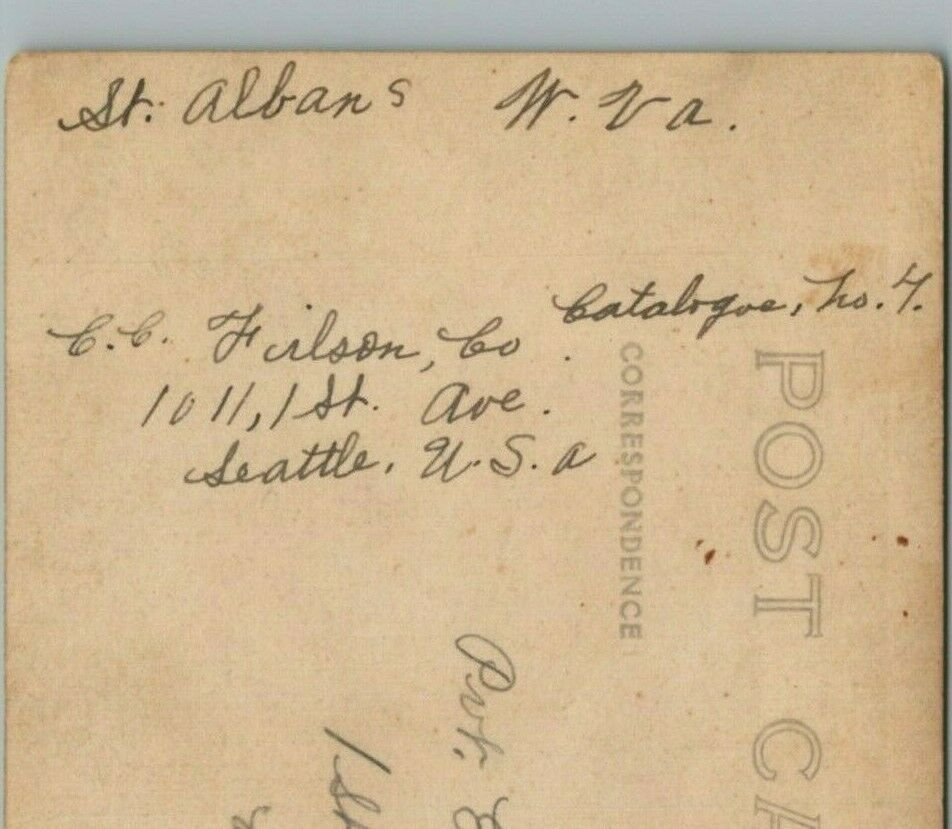 St. Albans W. Va.
C.C. Filson, Co. Catalogue, No. 4.
1011, 1st. Ave.
Seattle. U.S.A
CORRESPONDENCE
POST CA
Pvt.
1st